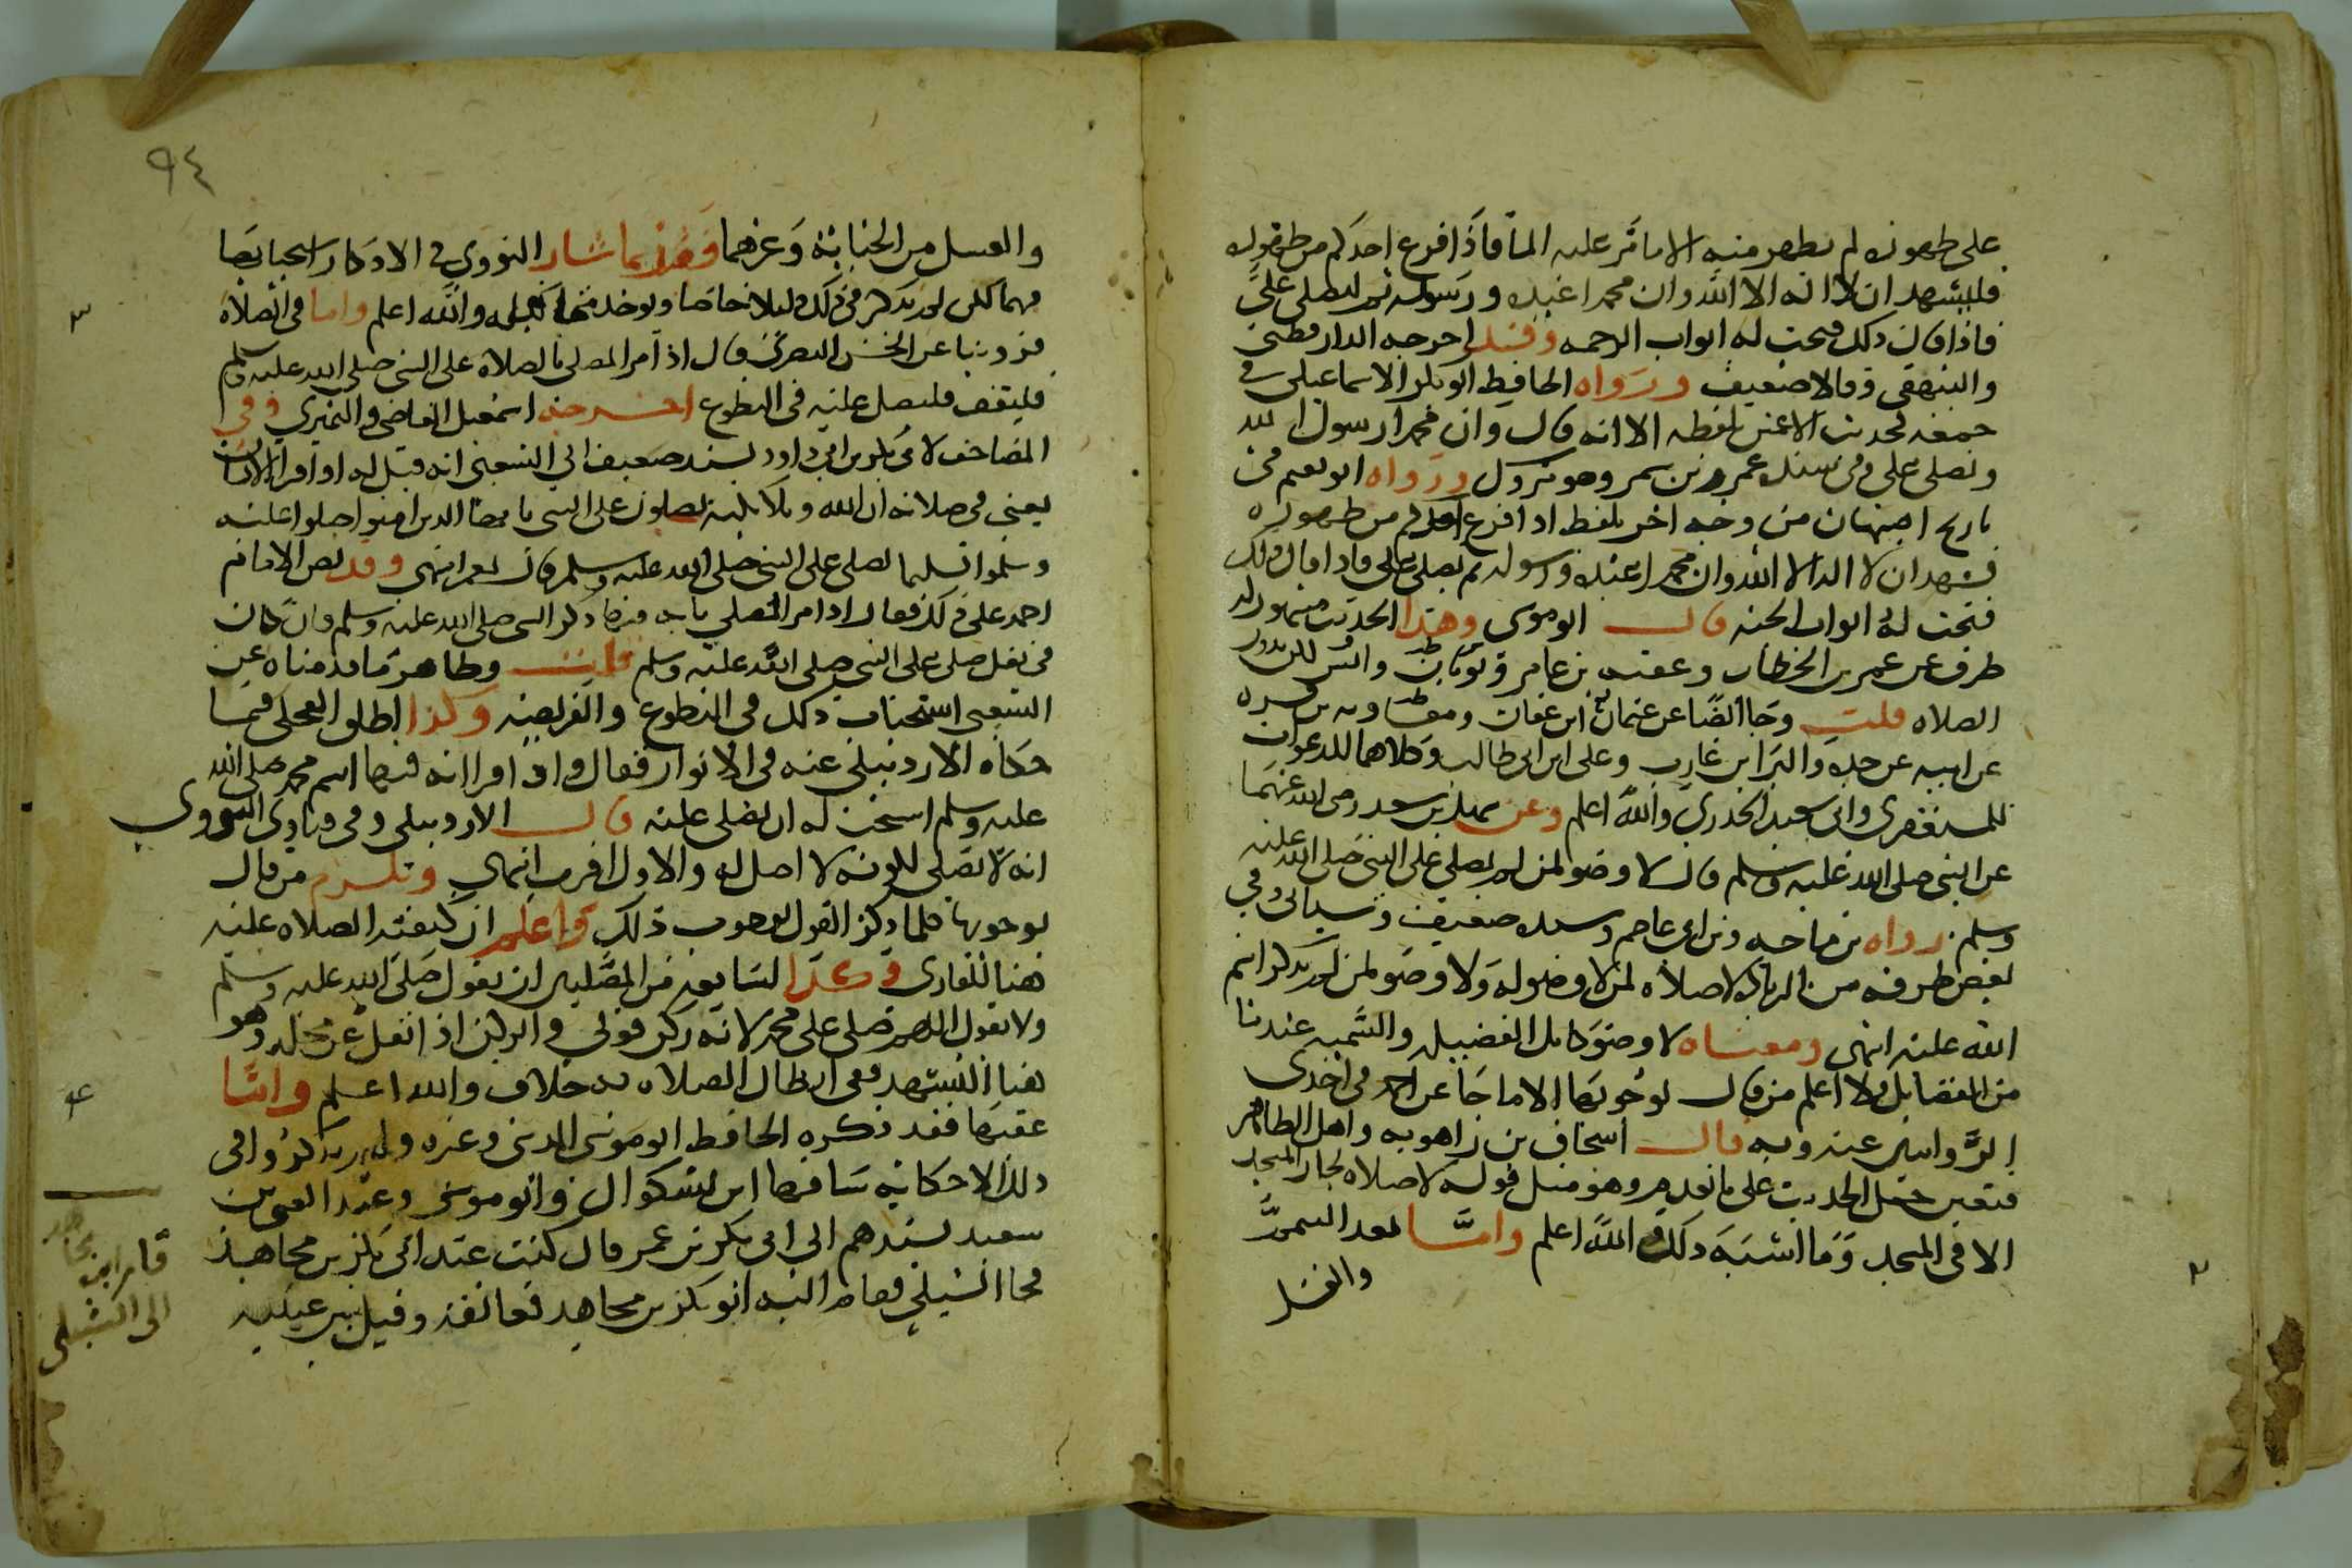 على طهوره لم يطهر منه الا ما مر عليه الما فاذا فرغ احدكم من طهوره
فليشهد ان لا اله الا الله وان محمدا عبده ورسوله ثم ليصلي عليّ
فاذا قال ذلك فتحت له ابواب الرحمه وقد اخرجه الدارقطني
والبيهقي وقالا ضعيف ورواه الحافظ ابو بكر الاسماعيلي في
جمعه لحديث الاعمش بلفظه الا انه قال وان محمدا رسول الله
ويصلي علي وفي سنده عمرو بن سمر وهو متروك ورواه ابو نعيم في
تاريخ اصبهان من وجه اخر بلفظ اذا فرغ احدكم من طهوره
فشهد ان لا اله الا الله وان محمدا عبده ورسوله ثم يصلي علي فاذا قال ذلك
فتحت له ابواب الجنه قال ابو موسى وهذا الحديث مشهور له
طرق عن عمر بن الخطاب وعقبه بن عامر وثوبان وانس لكن بدون
الصلاه قلت وجا ايضا عن عثمان ابن عفان ومعاويه بن قره
عن ابيه عن جده والبرا ابن عازب وعلي ابن ابي طالب وكلاهما للدعوات
للمستغفري وابي سعيد الخدري والله اعلم وعن سهل بن سعد رضي الله عنهما
عن النبي صلى الله عليه وسلم قال لا وضو لمن لم يصلي على النبي صلى الله عليه
وسلم رواه بن ماجه وبن ابي عاصم وسنده ضعيف وسياتي في
بعض طرقه من الزياده لا صلاه لمن لا وضو له ولا وضو لمن لم يذكر اسم
الله عليه انتهى ومعناه لا وضو كامل الفضيله والتسميه عندنا
من الفضايل ولا اعلم من قال بوجوبها الا ما جا عن احمد في احدى
الروايتين عنه وبه قال اسحاق بن راهويه واهل الظاهر
فتعين حمل الحديث على ما تقدم وهو مثل قوله لا صلاه لجار المسجد
الا في المسجد وما اشبه ذلك والله اعلم وامّا بعد التيمم
والغسل
٩٤
والغسل من الجنابة وغيرهما فقد اشار النووي في الاذكار استحبابها
فيهما لكن لم يذكر في ذلك دليلا خاصا والله اعلم واما في الصلاة
فروينا عن الحسن البصري قال اذا مر المصلي بالصلاة على النبي صلى الله عليه وسلم
فليقف فليصل عليه في التطوع اخرجه اسمعيل القاضي والنميري وفي
المصاحف لابي بكر بن ابي داود بسند ضعيف الى الشعبي انه قيل له اذا قرا الانسان
يعني في صلاته ان الله وملايكته يصلون على النبي يا ايها الذين امنوا صلوا عليه
وسلموا تسليما يصلي على النبي صلى الله عليه وسلم قال نعم انتهى وقد نص الامام
احمد على ذلك فقال اذا مر المصلي باية فيها ذكر النبي صلى الله عليه وسلم فان كان
في نفل صلى على النبي صلى الله عليه وسلم قلت وظاهر ما قدمناه عن
الشعبي استحباب ذلك في التطوع والفريضه وكذا اطلق العجلي فيما
حكاه الاردبيلي عنه في الانوار فقال واذا قرا اية فيها اسم محمد صلى الله
عليه وسلم استحب له ان يصلي عليه قال الاردبيلي وفي فتاوى النووي
انه لا يصلي لكونه لا اصل له والاول اقرب انتهى ويلزم من قال
بوجوبها كلما ذكر القول بوجوب ذلك واعلم ان كيفية الصلاه عليه
هنا للقاري وكذا السامع من المصليين ان يقول صلى الله عليه وسلم
ولا يقول اللهم صلي على محمد لانه ركن قولي والركن اذا انتقل عن محله وهو
هنا التشهد ففي ابطال الصلاه به خلاف والله اعلم وامّا
عقبها فقد ذكره الحافظ ابو موسى المديني وغيره ولم يذكروا في
ذلك الا حكاية ساقها ابن بشكوال وابو موسى وعبد الغني بن
سعيد بسندهم الى ابي بكر بن عمر قال كنت عند ابي بكر بن مجاهد
فجا الشبلي فقام اليه ابو بكر بن مجاهد فعانقه وقبل بين عينيه
قام ابن مجاهد
الى الشبلي